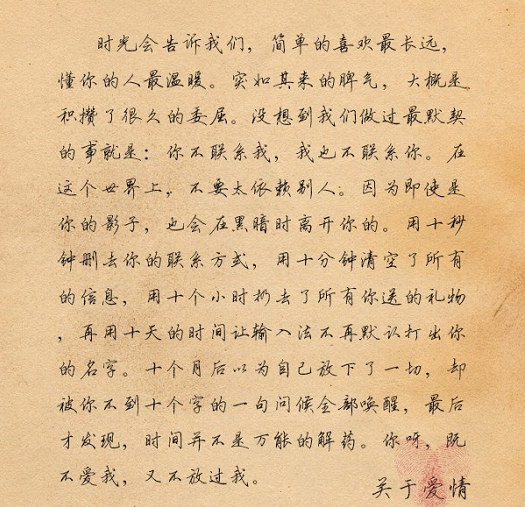 时光会告诉我们，简单的喜欢最长远，
懂你的人最温暖。突如其来的脾气，大概是
积攒了很久的委屈。没想到我们做过最默契
的事就是：你不联系我，我也不联系你。在
这个世界上，不要太依赖别人。因为即使是
你的影子，也会在黑暗时离开你的。用十秒
钟删去你的联系方式，用十分钟清空了所有
的信息，用十个小时扔去了所有你送的礼物
，再用十天的时间让输入法不再默认打出你
的名字。十个月后以为自己放下了一切，却
被你不到十个字的一句问候全部唤醒，最后
才发现，时间并不是万能的解药。你呀，既
不爱我，又不放过我。
关于爱情